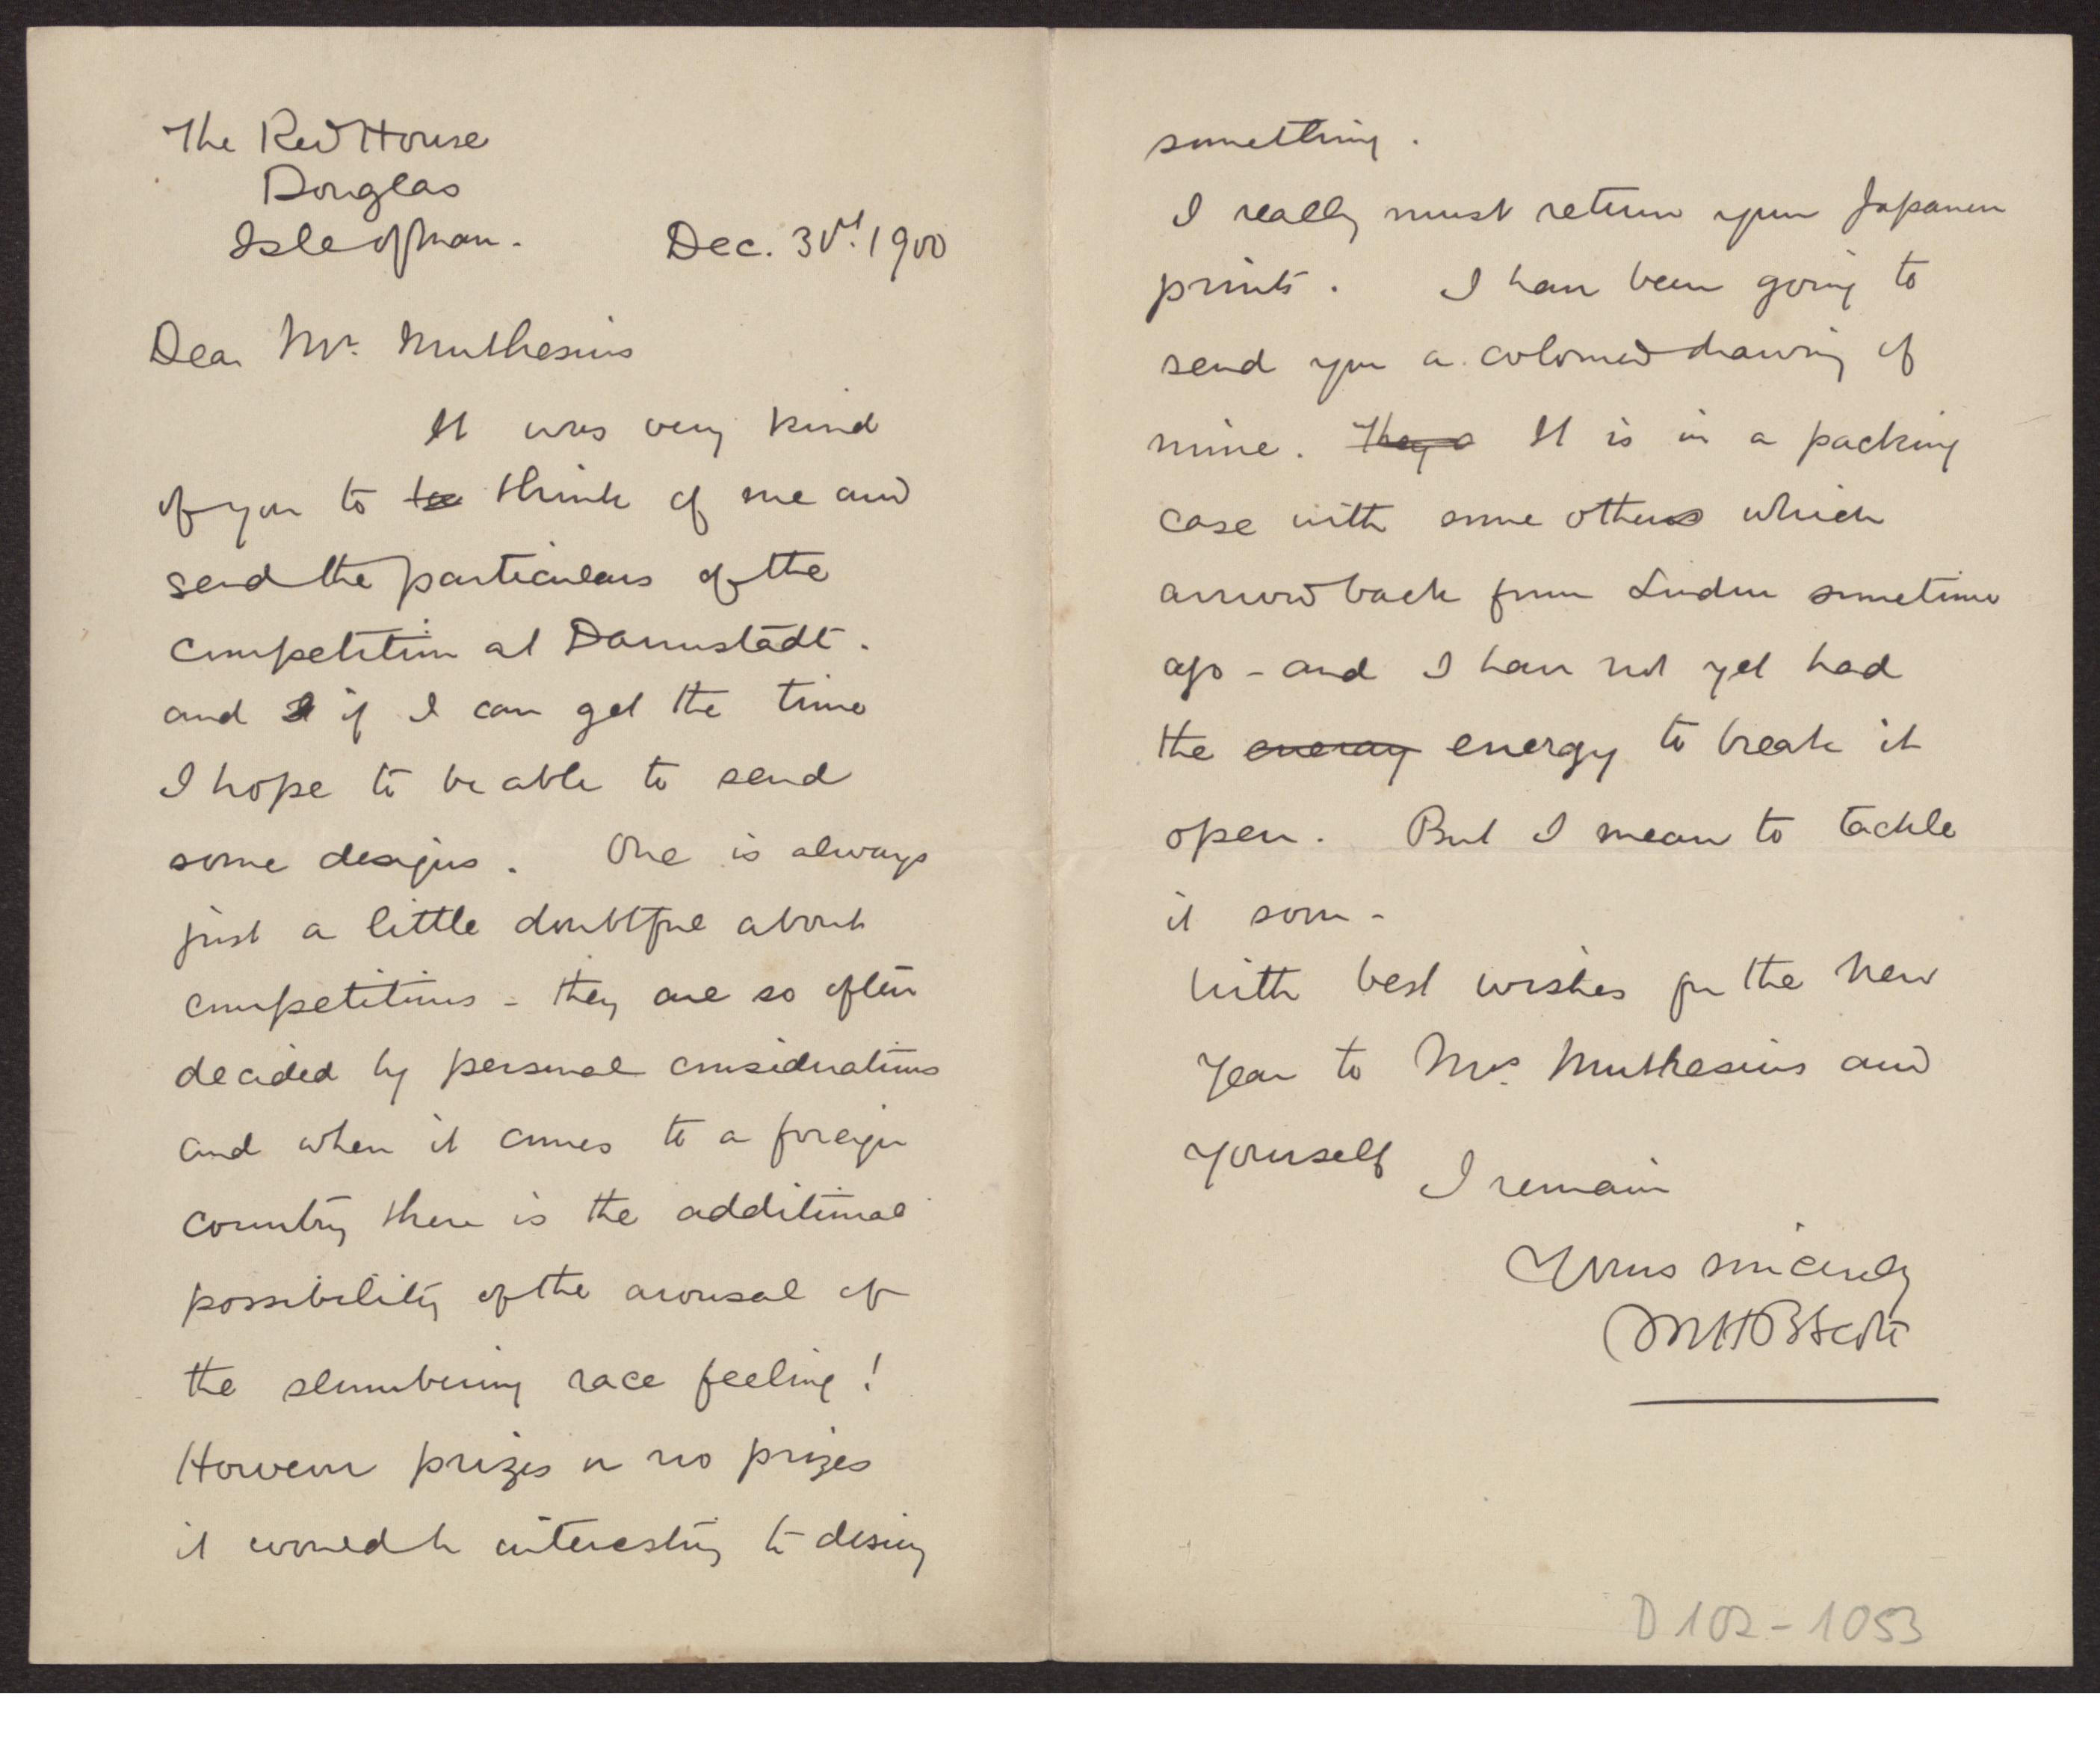 The Red House
Douglas
Isle of Man.
Dec. 1900
Dear Mr. Muthesius
It was very kind
of you to to think of me and
send the particulars of the
competition at Darmstadt.
and I if I can get the time
I hope to be able to send
some designs. One is always
just a little doubtful about
competitions - they are so often
decided by personal considerations
and when it comes to a foreign
country there is the additional
possibility of the arousal of
the slumbering race feeling!
However prizes or no prizes
it would be interesting to design
something.
I really must return your Japanese
prints. I have been going to
send you a coloured drawing of
mine. They It is in a packing
case with some others which
arrived back from London sometime
ago - and I have not yet had
the eneray energy to break it
open. But I mean to tackle
it soon -
With best wishes for the New
Year to Mrs. Muthesius and
yourself I remain
Yours sincerely
MHBScott
D 102-1053